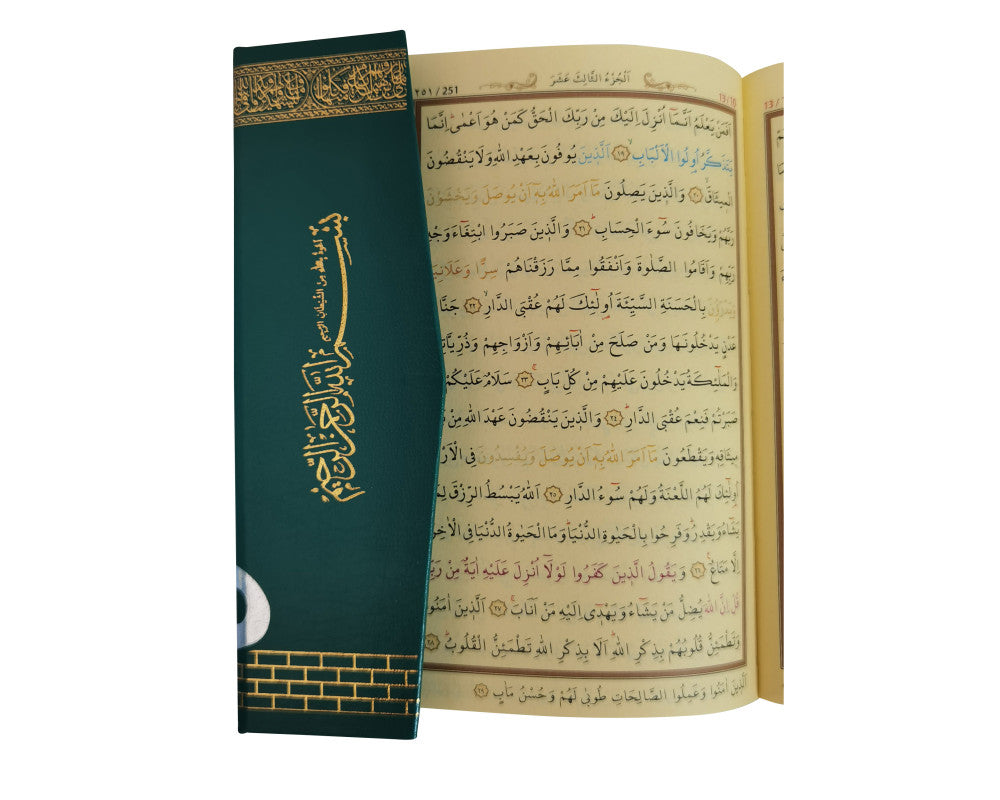 اَلْجُزْءُ الثَّالِثَ عَشَرَ
٢٥١ / 251
13/10
اَفَمَنْ يَعْلَمُ اَنَّمَٓا اُنْزِلَ اِلَيْكَ مِنْ رَبِّكَ الْحَقُّ كَمَنْ هُوَ اَعْمٰىۜ اِنَّمَا
يَتَذَكَّرُ اُو۬لُوا الْاَلْبَابِۙ ﴿١٩﴾ اَلَّذ۪ينَ يُوفُونَ بِعَهْدِ اللّٰهِ وَلَا يَنْقُضُونَ
الْم۪يثَاقَۙ ﴿٢٠﴾ وَالَّذ۪ينَ يَصِلُونَ مَٓا اَمَرَ اللّٰهُ بِه۪ٓ اَنْ يُوصَلَ وَيَخْشَوْنَ
رَبَّهُمْ وَيَخَافُونَ سُٓوءَ الْحِسَابِۜ ﴿٢١﴾ وَالَّذ۪ينَ صَبَرُوا ابْتِغَٓاءَ وَجْهِ
رَبِّهِمْ وَاَقَامُوا الصَّلٰوةَ وَاَنْفَقُوا مِمَّا رَزَقْنَاهُمْ سِرًّا وَعَلَانِيَةً
وَيَدْرَؤُ۫نَ بِالْحَسَنَةِ السَّيِّئَةَ اُو۬لٰٓئِكَ لَهُمْ عُقْبَى الدَّارِۙ ﴿٢٢﴾ جَنَّا
عَدْنٍ يَدْخُلُونَهَا وَمَنْ صَلَحَ مِنْ اٰبَٓائِهِمْ وَاَزْوَاجِهِمْ وَذُرِّيَّا
وَالْمَلٰٓئِكَةُ يَدْخُلُونَ عَلَيْهِمْ مِنْ كُلِّ بَابٍۚ ﴿٢٣﴾ سَلَامٌ عَلَيْكُمْ
صَبَرْتُمْ فَنِعْمَ عُقْبَى الدَّارِۜ ﴿٢٤﴾ وَالَّذ۪ينَ يَنْقُضُونَ عَهْدَ اللّٰهِ مِنْ
م۪يثَاقِه۪ وَيَقْطَعُونَ مَٓا اَمَرَ اللّٰهُ بِه۪ٓ اَنْ يُوصَلَ وَيُفْسِدُونَ فِي الْاَرْ
اُو۬لٰٓئِكَ لَهُمُ اللَّعْنَةُ وَلَهُمْ سُٓوءُ الدَّارِ ﴿٢٥﴾ اَللّٰهُ يَبْسُطُ الرِّزْقَ لِمَ
يَشَٓاءُ وَيَقْدِرُۜ وَفَرِحُوا بِالْحَيٰوةِ الدُّنْيَاۜ وَمَا الْحَيٰوةُ الدُّنْيَا فِي الْاٰخِرَ
اِلَّا مَتَاعٌ۟ ﴿٢٦﴾ وَيَقُولُ الَّذ۪ينَ كَفَرُوا لَوْلَٓا اُنْزِلَ عَلَيْهِ اٰيَةٌ مِنْ رَبِّ
قُلْ اِنَّ اللّٰهَ يُضِلُّ مَنْ يَشَٓاءُ وَيَهْد۪ٓي اِلَيْهِ مَنْ اَنَابَۚ ﴿٢٧﴾ اَلَّذ۪ينَ اٰمَنُوا
وَتَطْمَئِنُّ قُلُوبُهُمْ بِذِكْرِ اللّٰهِۜ اَلَا بِذِكْرِ اللّٰهِ تَطْمَئِنُّ الْقُلُوبُۜ ﴿٢٨﴾
اَلَّذ۪ينَ اٰمَنُوا وَعَمِلُوا الصَّالِحَاتِ طُوبٰى لَهُمْ وَحُسْنُ مَاٰبٍ ﴿٢٩﴾
أعوذ بالله من الشيطان الرجيم
بسم الله الرحمن الرحيم